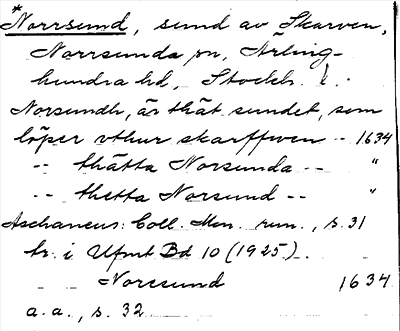 *Norrsund, sund av Skarven,
Norrsunda sn, Ärling-
hundra hd, Stockh. l.
Norsundh, är thät sundet, som
löper vthur skarffwen -- 1634
-- thätta Norsunda -- "
-- thetta Norsund -- "
Aschaneus: Coll. Mon. run., s. 31
tr. i Ufmt Bd 10 (1925).
- - Norssund 1634
a. a., s. 32